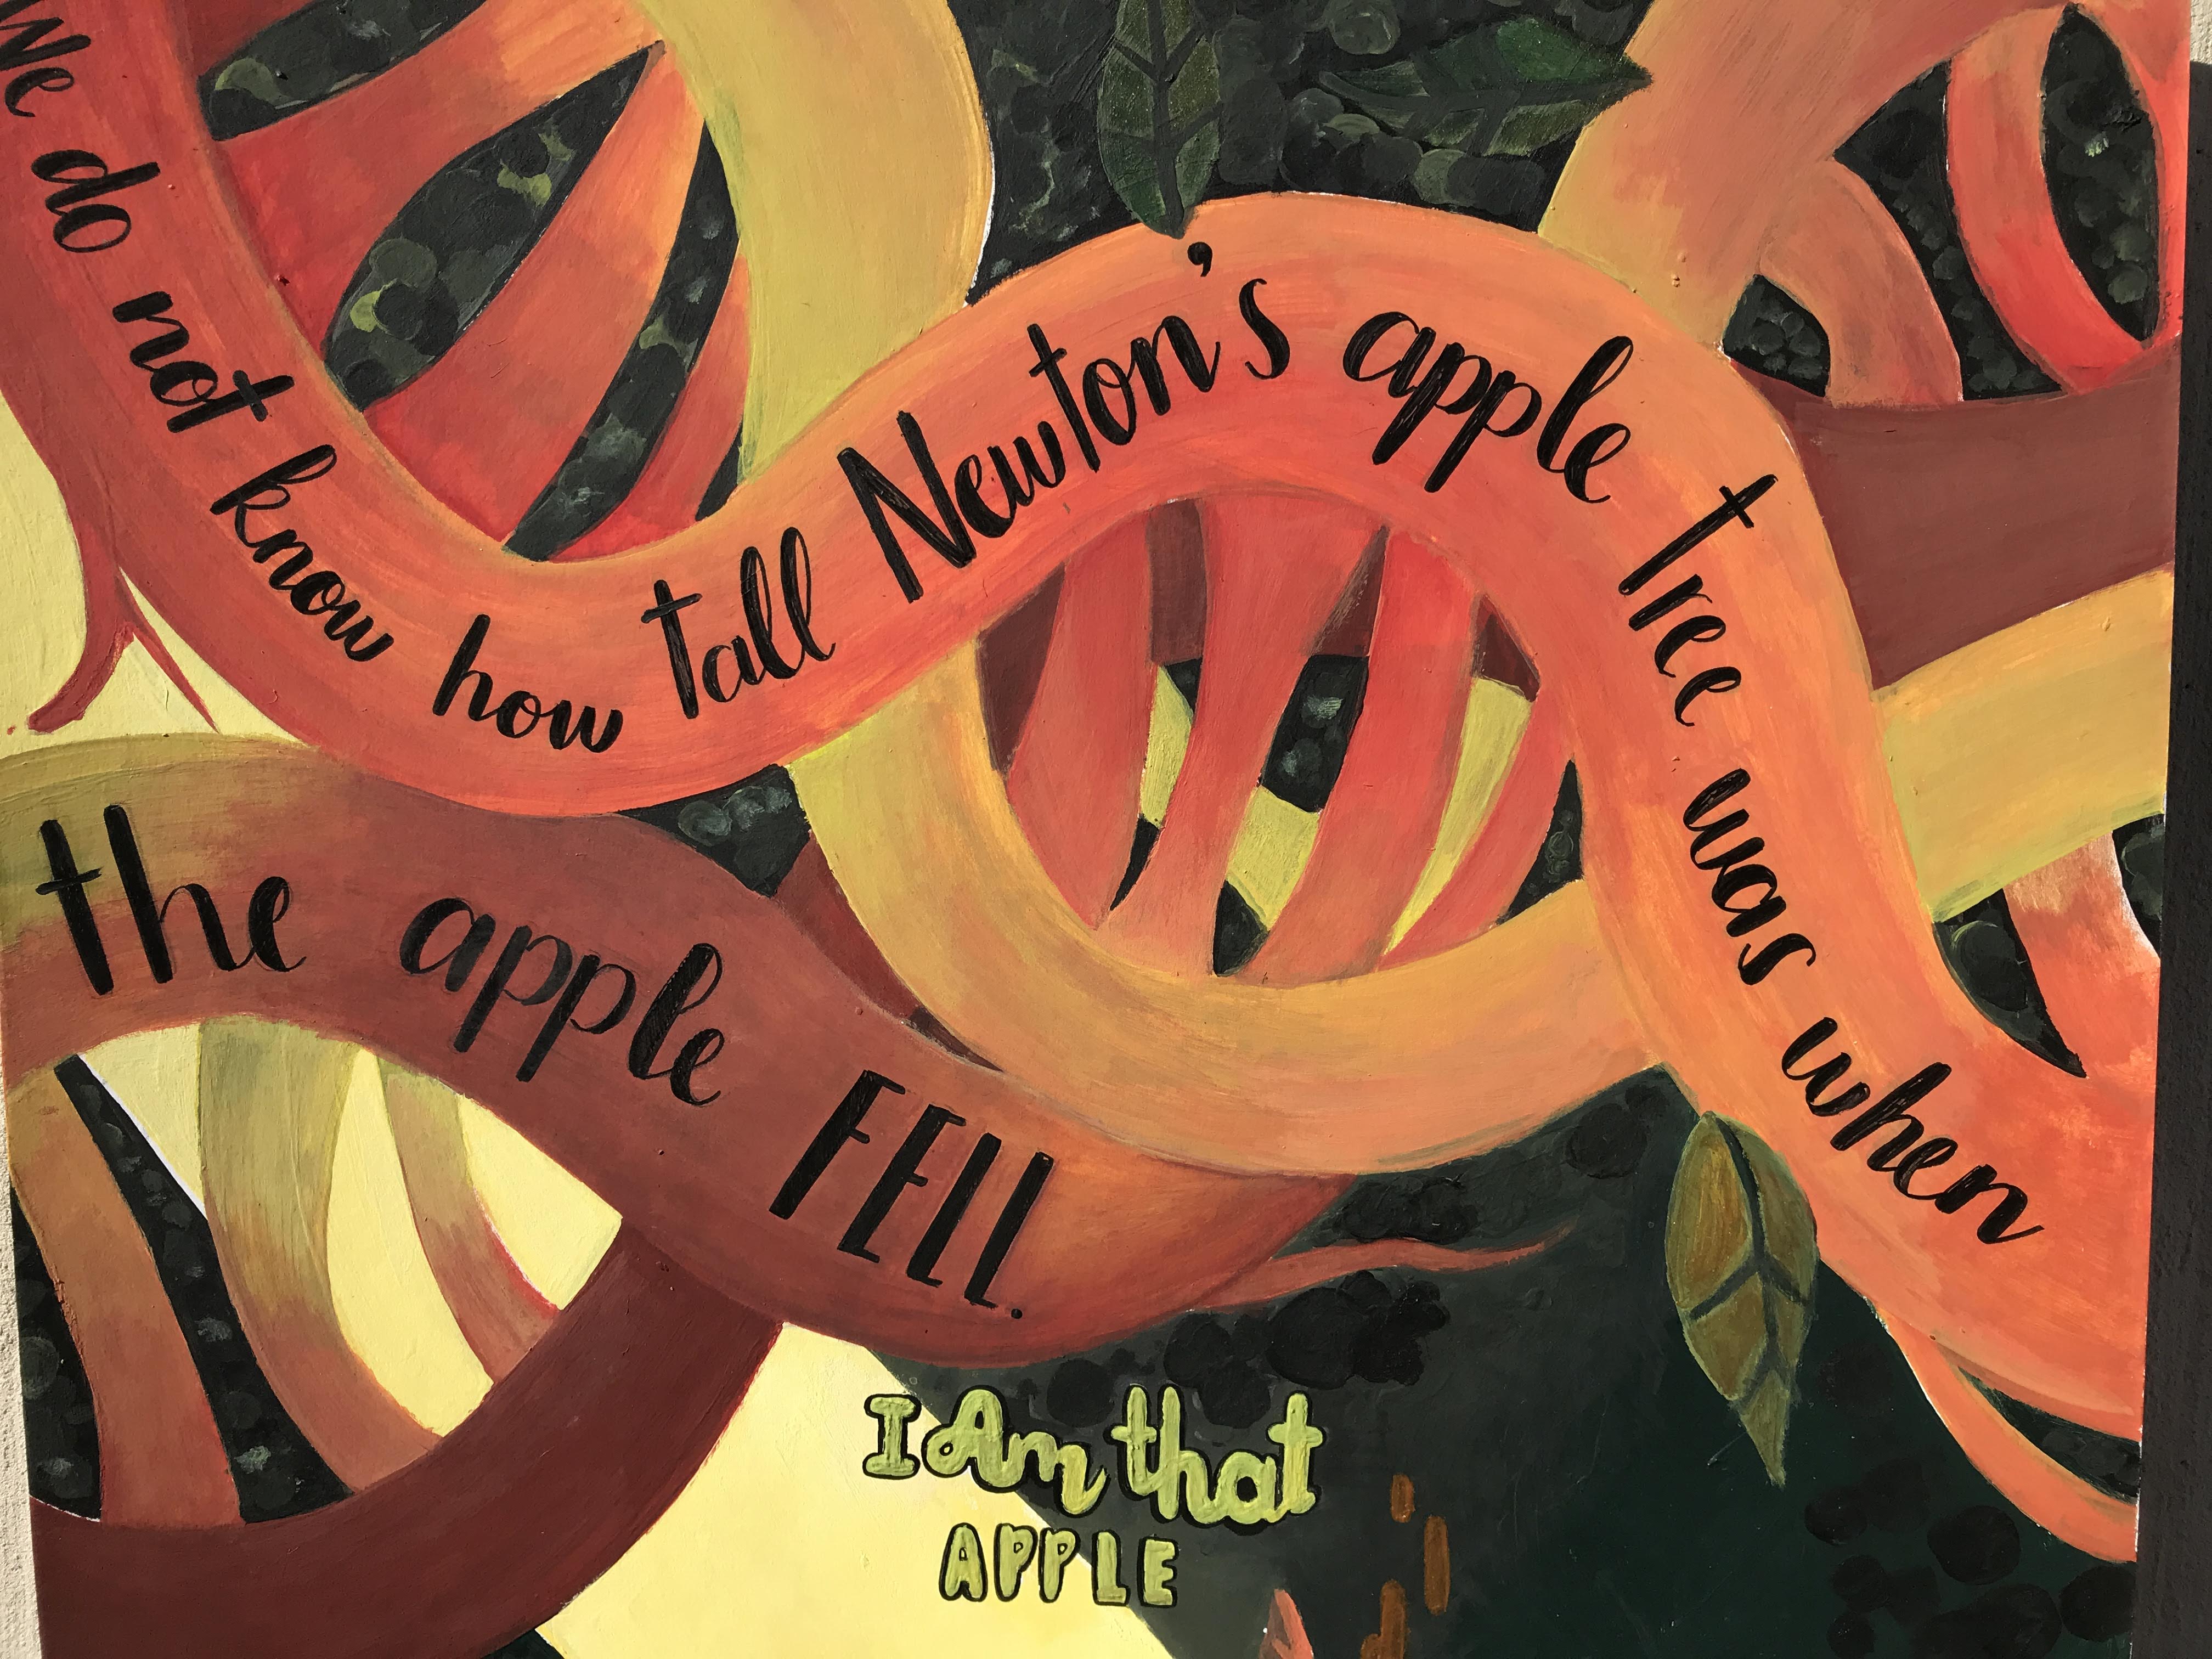 We do not know how tall Newton's apple tree was when
the apple FELL.
I Am that
APPLE